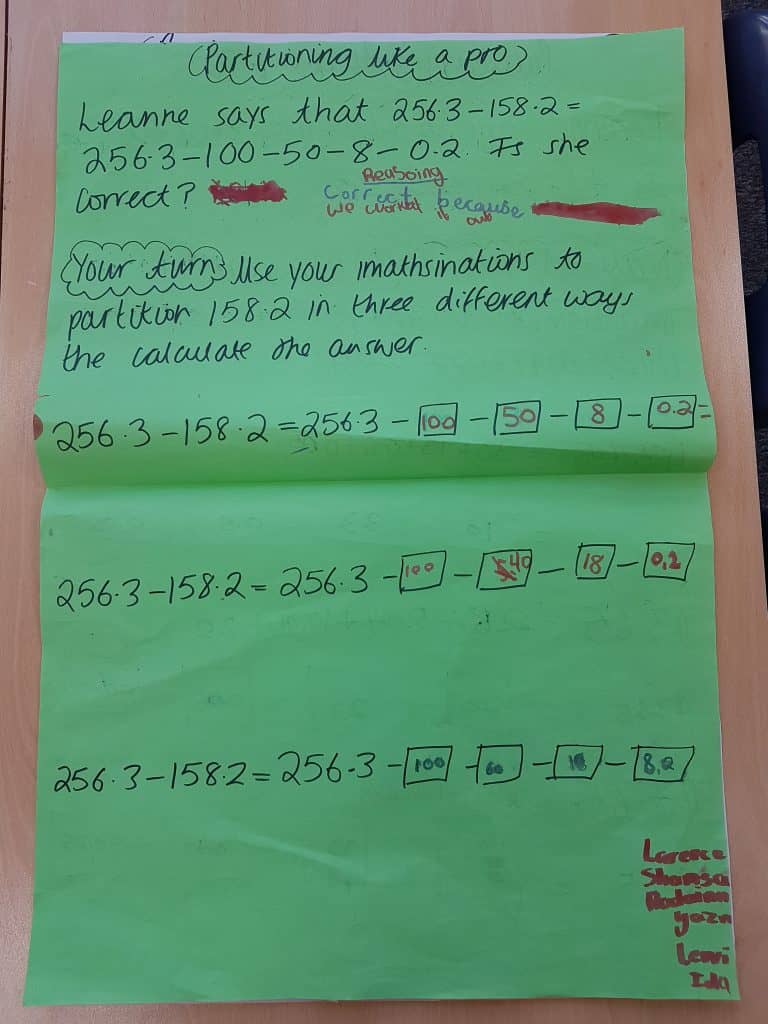 Partitioning like a pro
Leanne says that 256.3 - 158.2 =
256.3 - 100 - 50 - 8 - 0.2. Is she
correct?
Reasoing
correct because
we worked it out
Your turn Use your imathsinations to
partition 158.2 in three different ways
the calculate the answer.
256.3 - 158.2 = 256.3 - 100 - 50 - 8 - 0.2 =
256.3 - 158.2 = 256.3 - 100 - 40 - 18 - 0.2
256.3 - 158.2 = 256.3 - 100 - - - 8.2
Larence
Shamsa
yazn
Lenni